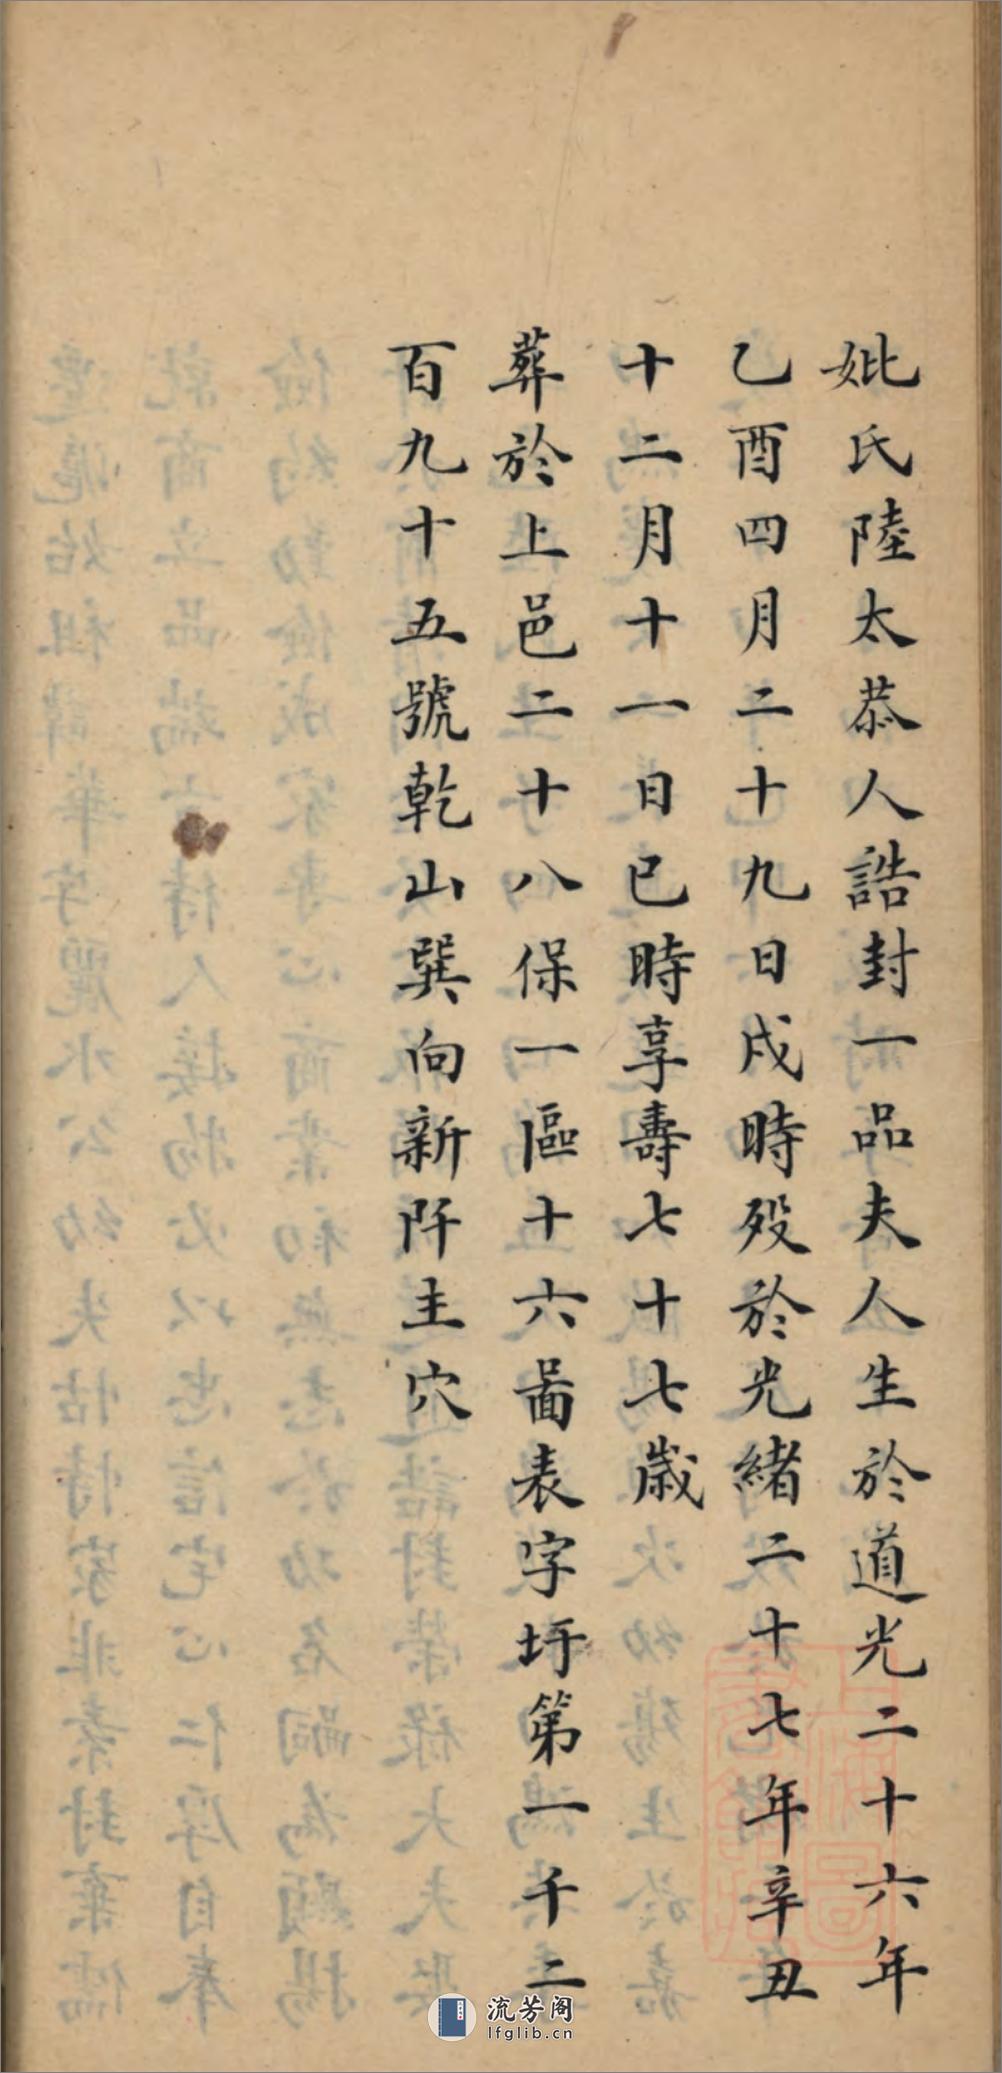 妣氏陸太恭人誥封一品夫人生於道光二十六年
乙酉四月二十九日戌時歿於光緒二十七年辛丑
十二月十一日巳時享壽七十七歲
葬於上邑二十八保一區十六啚表字圩第一千二
百九十五號乾山巽向新阡主穴
流芳阁
lfglib.cn